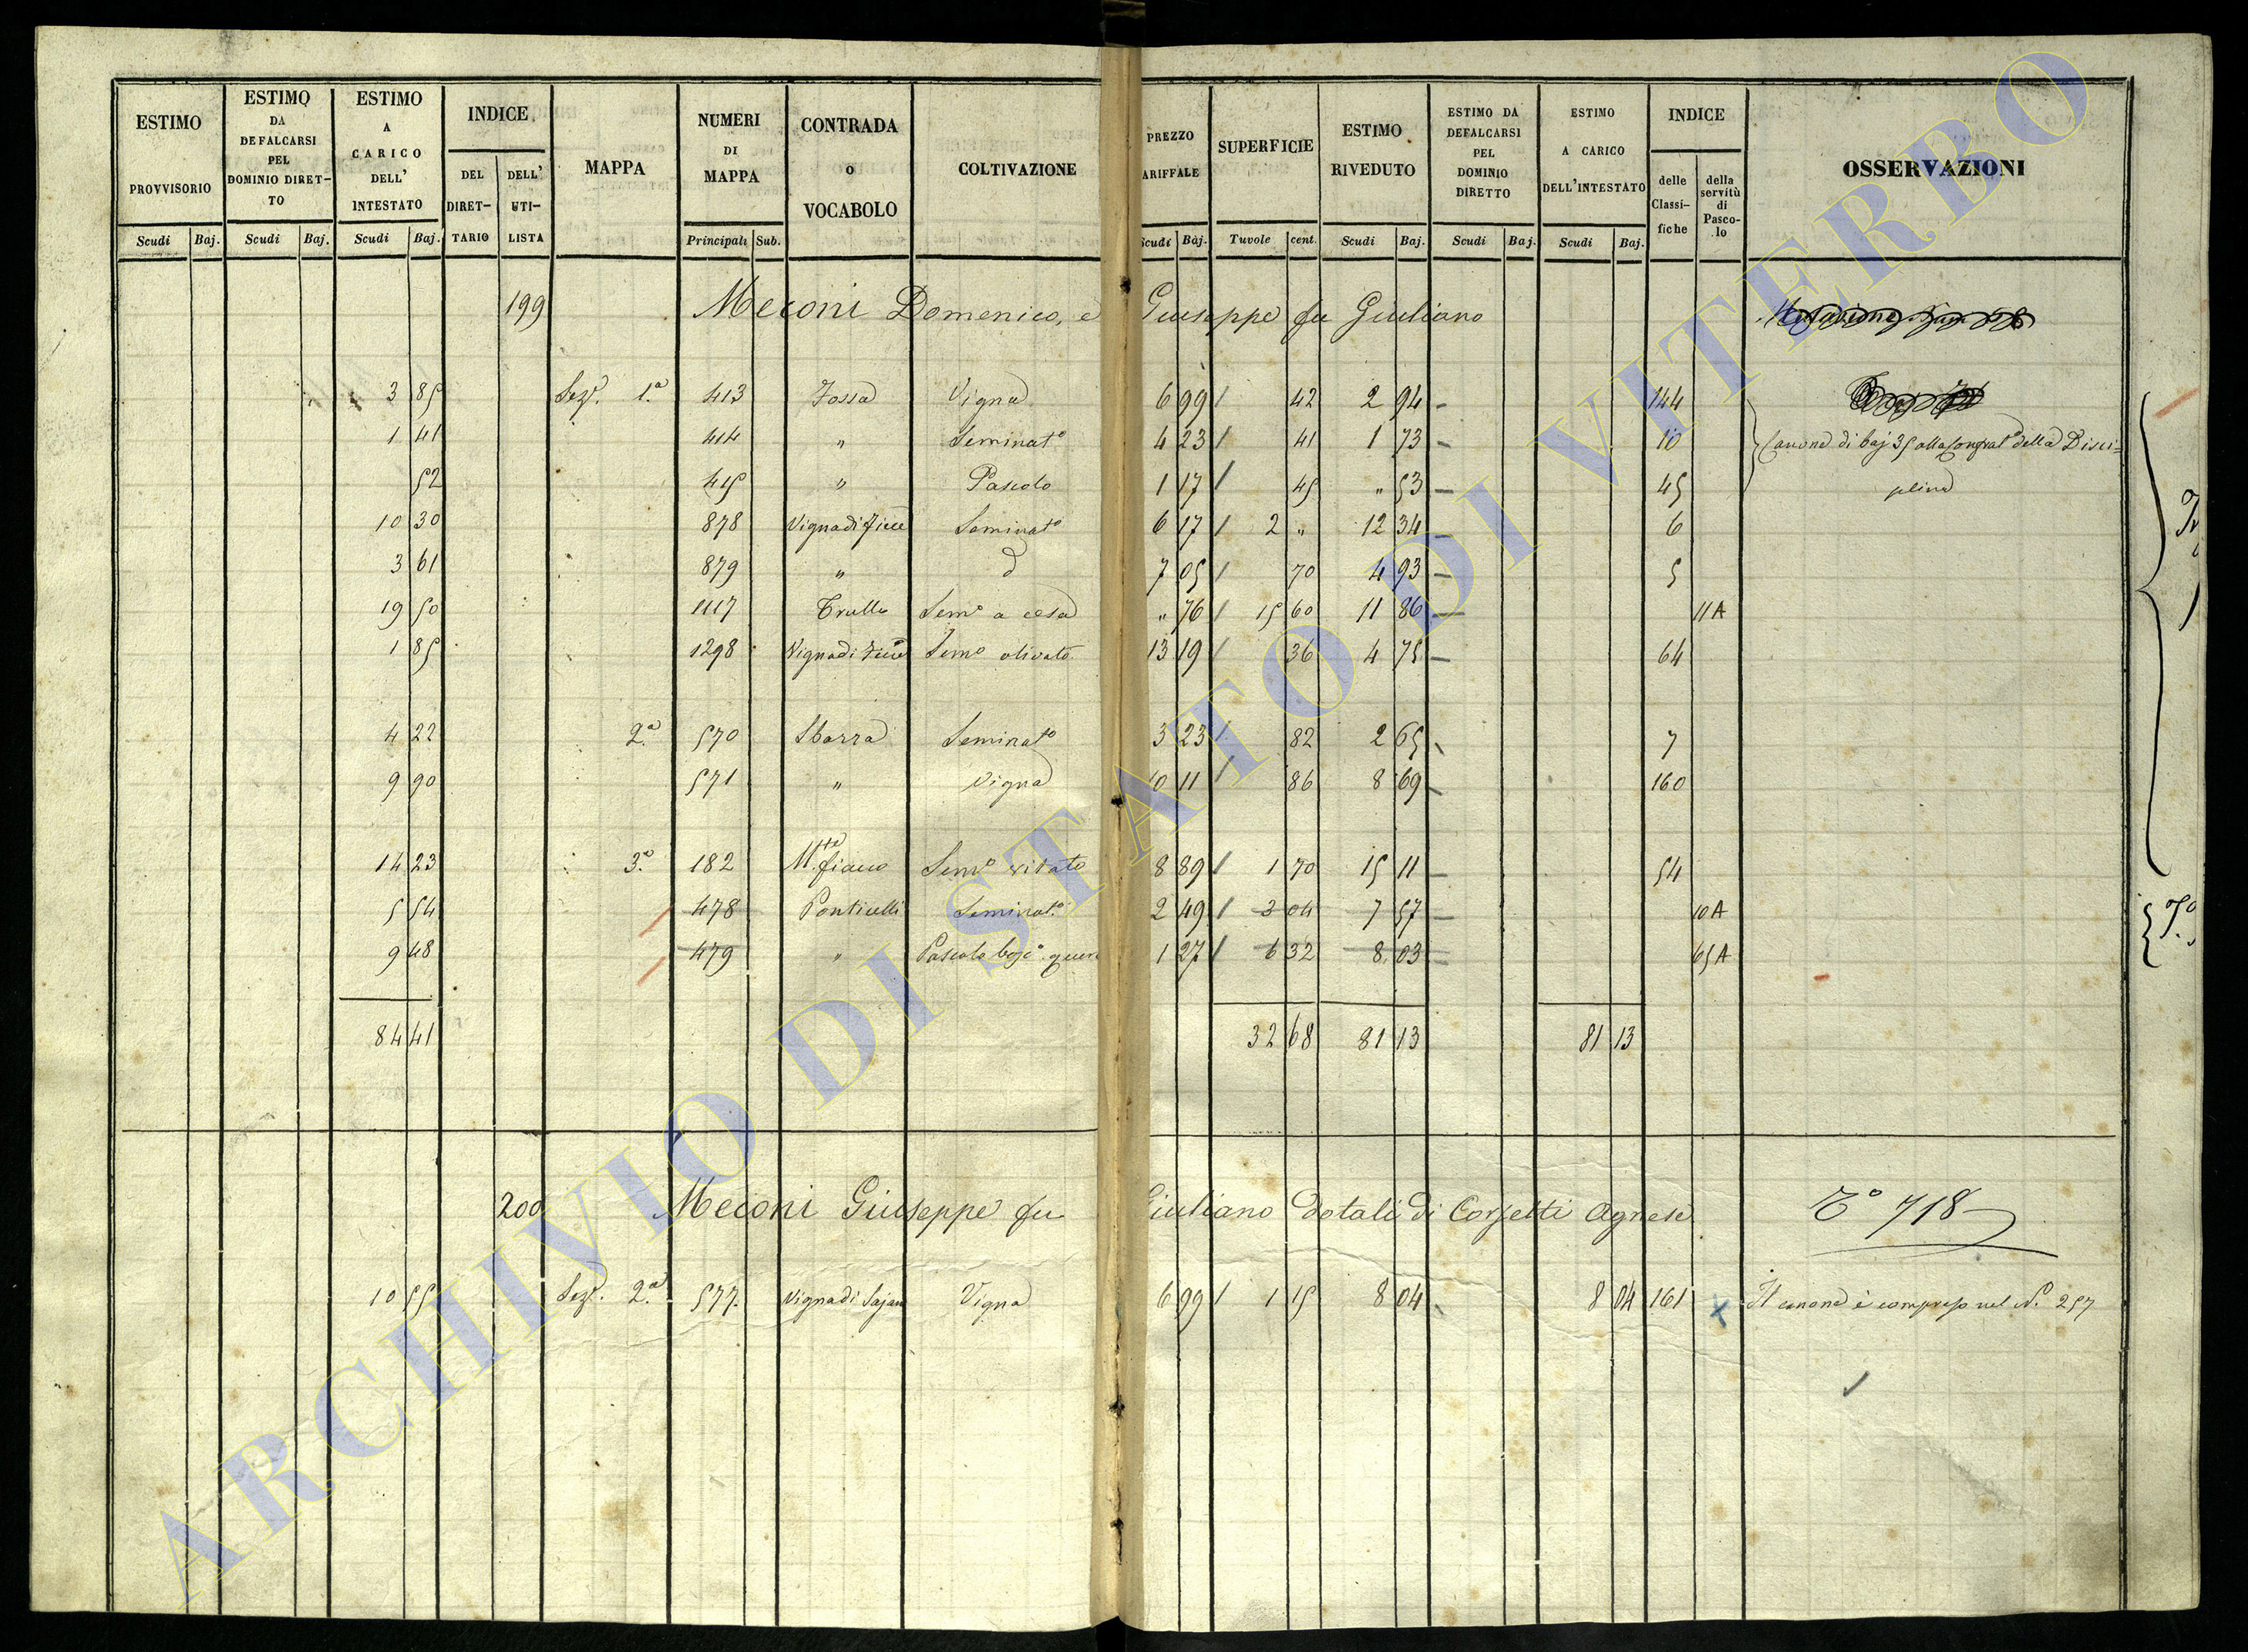 ESTIMO PROVVISORIO Scudi Baj.
ESTIMO DA DEFALCARSI PEL DOMINIO DIRETTO Scudi Baj.
ESTIMO A CARICO DELL' INTESTATO Scudi Baj.
INDICE DEL DIRETTARIO DELL' UTILISTA
MAPPA
NUMERI DI MAPPA Principali Sub.
CONTRADA O VOCABOLO
COLTIVAZIONE
PREZZO ARIFFALE Scudi Baj.
SUPERFICIE Tuvole cent.
ESTIMO RIVEDUTO Scudi Baj.
ESTIMO DA DEFALCARSI PEL DOMINIO DIRETTO Scudi Baj.
ESTIMO A CARICO DELL'INTESTATO Scudi Baj.
INDICE delle Classifiche della servitù di Pascolo
OSSERVAZIONI
199 Meconi Domenico, e Giuseppe fu Giuliano
3 85 Sezᵉ. 1.ª 413 Fossa Vigna 6 99 / 42 2 94 - 144
1 41 414 " Seminatº 4 23 / 41 1 73 - 10 Canone di baj 35 alla Congratᵉ della Disci=
52 415 " Pascolo 1 17 / 45 " 53 - 45 plina
10 30 878 Vigna di Fiece Seminatº 6 17 / 2 " 12 34 - 6
3 61 879 " d 7 05 / 70 4 93 - 5
19 50 1117 Trullo Semº a cesa " 76 / 15 60 11 86 - 11 A
1 85 1298 Vigna di Fiece Semº olivato 13 19 / 36 4 75 - 64
4 22 2.ª 570 Sbarra Seminatº 3 23 / 82 2 65 - 7
9 90 571 " Vigna 10 11 / 86 8 69 - 160
14 23 3.ª 182 M.te fiano Semº vitato 8 89 / 1 70 15 11 - 54
5 54 478 Ponticelli Seminatº 2 49 / 3 04 7 57 - 10 A
9 48 479 " Pascolo bojº querc 1 27 / 6 32 8 03 - 65 A
84 41 32 68 81 13 81 13
200 Meconi Giuseppe fu Giuliano dotali di Corzetti Agnese Tº 718
10 55 Sezᵉ. 2.ª 577. Vigna di Sajan Vigna 6 99 / 1 15 8 04 8 04 161 x Il canone è compreso nel N. 257
ARCHIVIO DI STATO DI VITERBO